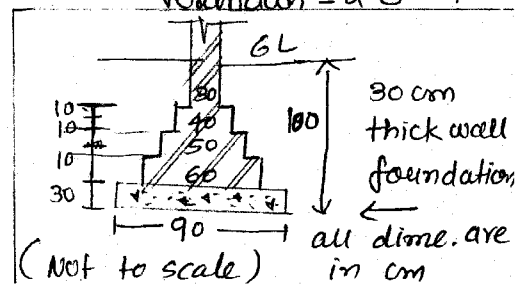 GL
30
10
10
10
30
40
50
60
100
90
30 cm
thick wall
foundation
all dime. are
in cm
(Not to scale)